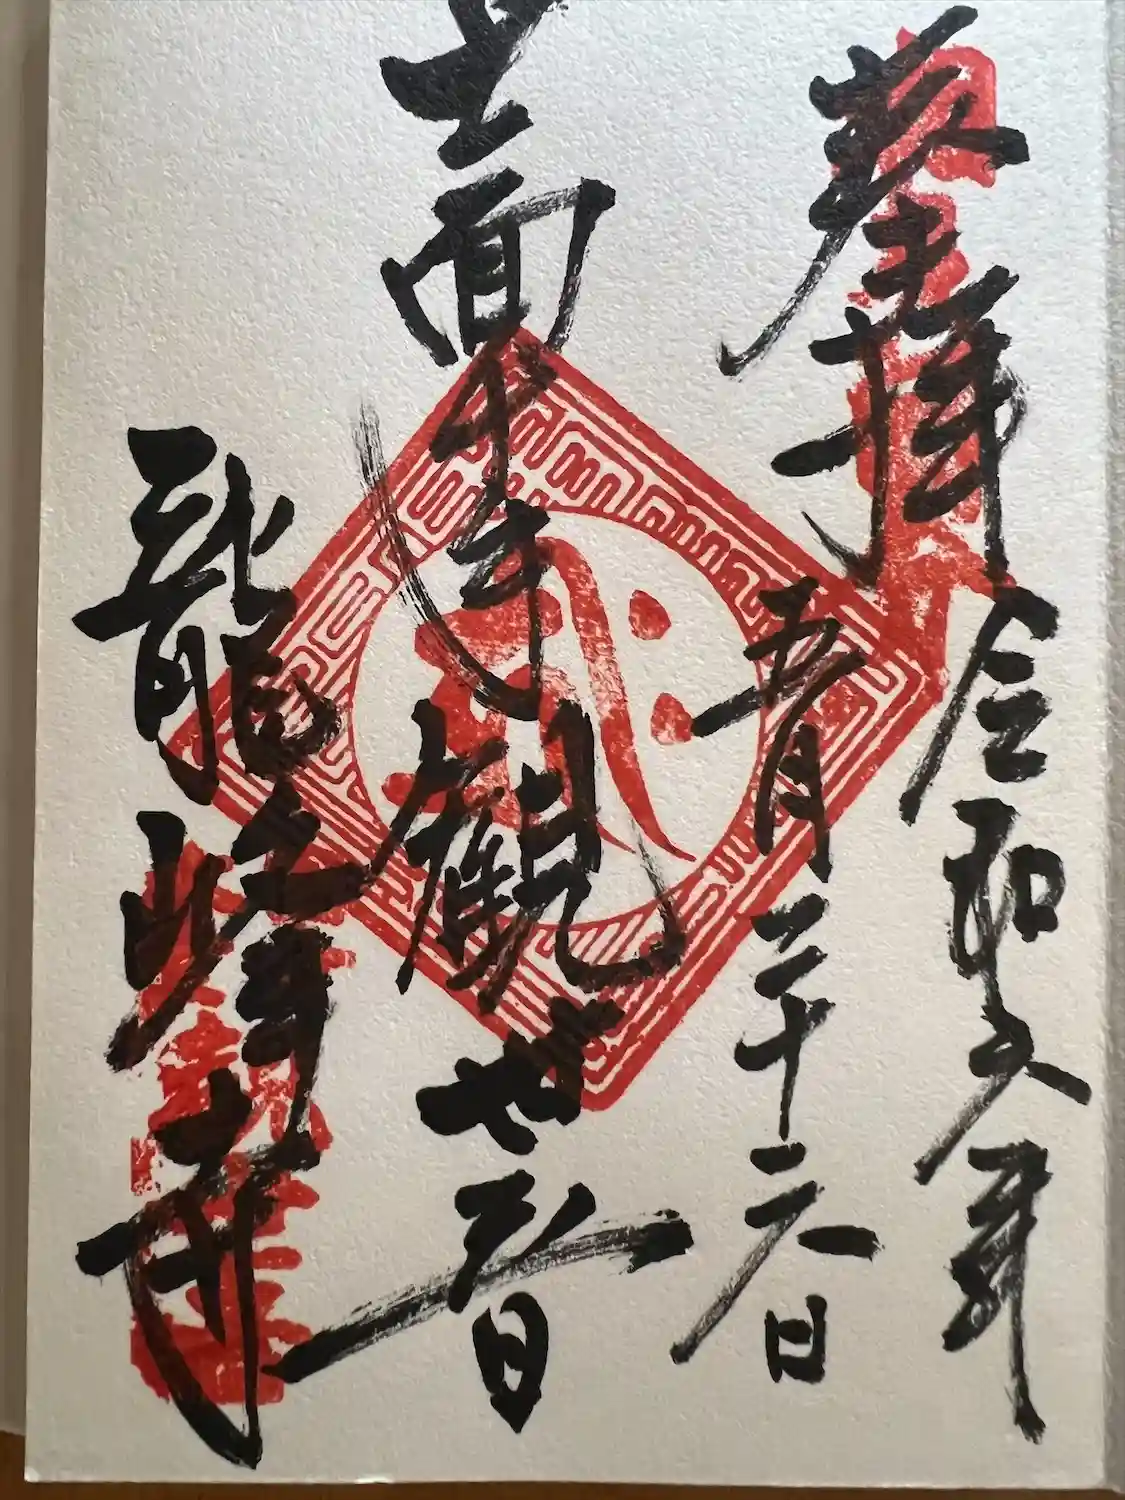 奉拝
令和六年
五月二十六日
十一面千手観世音
龍峰寺